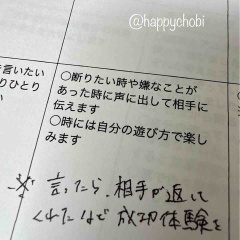 @happychobi
言いたい
りひとり
い
○断りたい時や嫌なことが
あった時に声に出して相手に
伝えます
○時には自分の遊び方で楽し
みます
※ 言ったら、相手が返して
くれたなど成功体験を